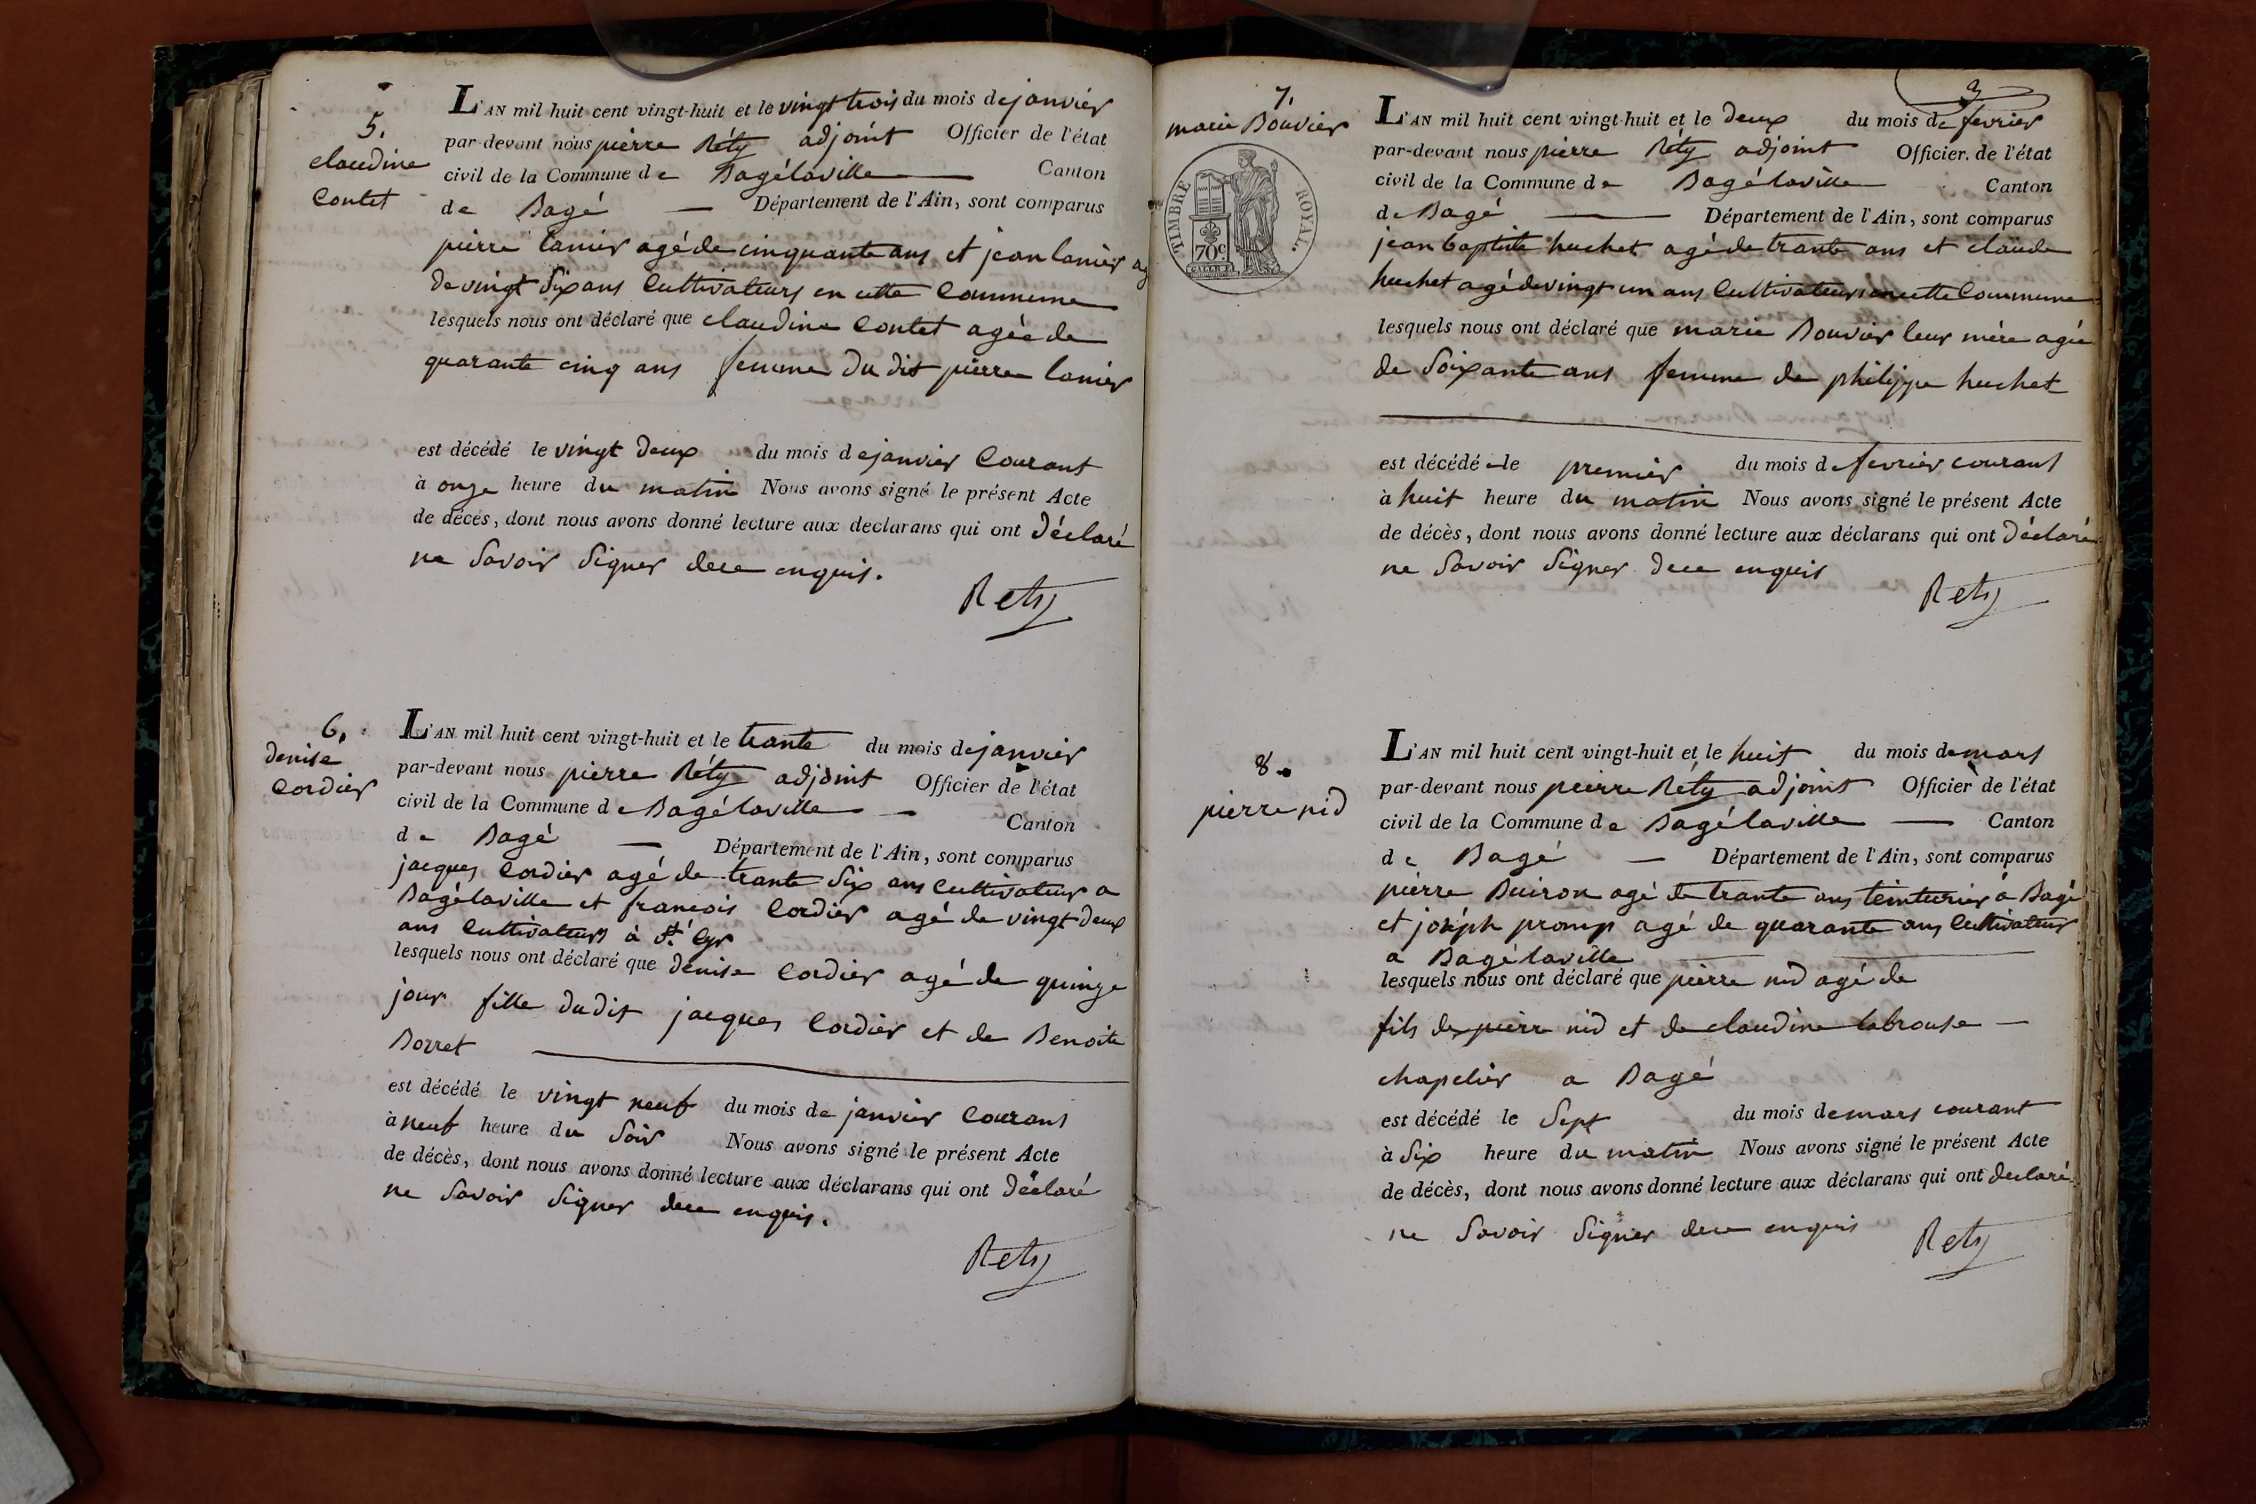 5.
claudine
Contet
L'AN mil huit cent vingt-huit et le vingt trois du mois de janvier
par-devant nous pierre Réty adjoint Officier de l'état
civil de la Commune de Bagélaville Canton
de Bagé Département de l'Ain, sont comparus
pierre lanier agé de cinquante ans et jean lanier ag
de vingt Six ans Cultivateurs en cette Commune
lesquels nous ont déclaré que claudine Contet agée de
quarante cinq ans femme du dit pierre lanier
est décédé le vingt deux du mois de janvier Courant
à onze heure du matin Nous avons signé le présent Acte
de décès, dont nous avons donné lecture aux declarans qui ont déclaré
ne Savoir Signer dece enquis.
Réty
6.
denise
Cordier
L'AN mil huit cent vingt-huit et le trante du mois de janvier
par-devant nous pierre Réty adjoint Officier de l'état
civil de la Commune de Bagélaville Canton
de Bagé Département de l'Ain, sont comparus
jacques Cordier agé de trante Six ans Cultivateur a
Bagélaville et francois Cordier agé de vingt deux
ans Cultivateurs à St Cyr
lesquels nous ont déclaré que denise Cordier agé de quinze
jour fille dudit jacques Cordier et de Benoite
Borret
est décédé le vingt neuf du mois de janvier Courant
à neuf heure du Soir Nous avons signé le présent Acte
de décès, dont nous avons donné lecture aux déclarans qui ont déclaré
ne Savoir Signer dece enquis.
Réty
3
7.
marie Bouvier
TIMBRE ROYAL.
70c
L'AN mil huit cent vingt-huit et le deux du mois de fevrier
par-devant nous pierre Réty adjoint Officier de l'état
civil de la Commune de Bagélaville Canton
de Bagé Département de l'Ain, sont comparus
jean baptiste huchet agé de trante ans et claude
huchet agé de vingt un ans Cultivateurs en cette Commune
lesquels nous ont déclaré que marie Bouvier leur mère agée
de Soixante ans femme de philippe huchet
est décédé le premier du mois de fevrier courant
à huit heure du matin Nous avons signé le présent Acte
de décès, dont nous avons donné lecture aux déclarans qui ont déclaré
ne Savoir Signer dece enquis
Réty
8.
pierre nid
L'AN mil huit cent vingt-huit et le huit du mois de mars
par-devant nous pierre Réty adjoint Officier de l'état
civil de la Commune de Bagélaville Canton
de Bagé Département de l'Ain, sont comparus
pierre Buiron agé de trante ans teinturier à Bagé
et joseph promp agé de quarante ans Cultivateur
a Bagélaville
lesquels nous ont déclaré que pierre nid agé de
fils de pierre nid et de claudine labrouse
chapelier a Bagé
est décédé le Sept du mois de mars courant
à Six heure du matin Nous avons signé le présent Acte
de décès, dont nous avons donné lecture aux déclarans qui ont declaré
ne Savoir Signer dece enquis
Réty